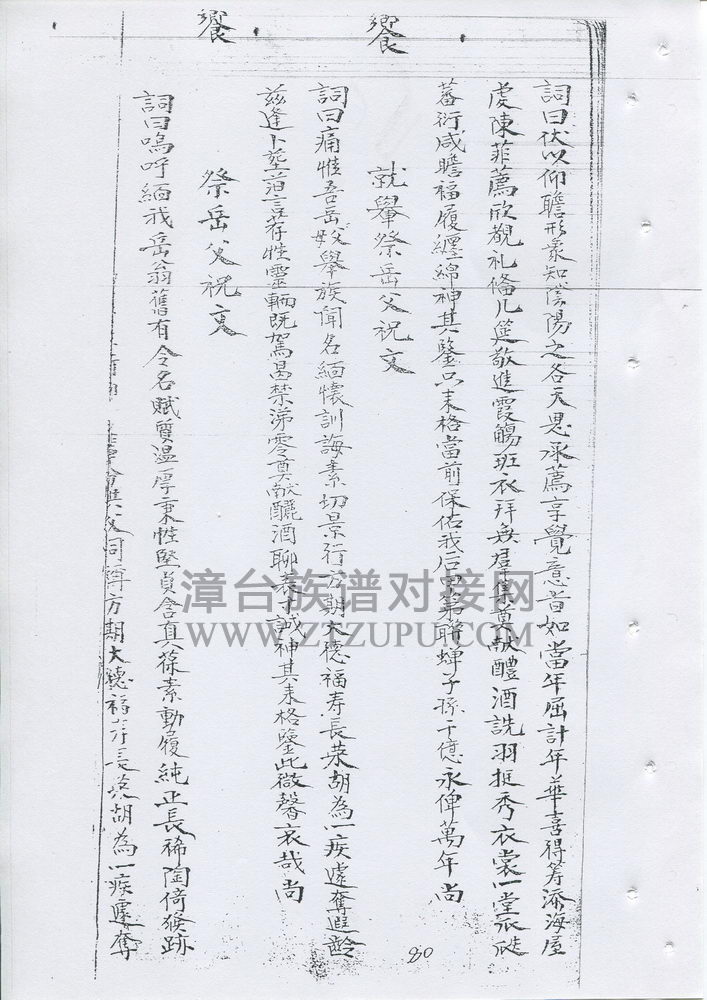 詞曰伏以仰瞻形象知陰陽之各天思承薦享覺意旨如當年屈計年華喜得筹添海屋
虔陳菲薦欣覩礼俻几筵敬進霞觴班衣拜舞羣集奠献醴酒詵羽挺秀衣裳一堂瓜瓞
蕃衍咸瞻福履纏綿神其鑒只來格當前保佑我后兄弟聯蟬子孫千億永俾萬年尚
饗
就轝祭岳父祝文
詞曰痛惟吾岳父舉族聞名緬懷訓誨素切景行方期大德福寿長荣胡為一疾遽奪遐齡
兹逢卜塟 言荐牲靈輌既駕曷禁涕零奠献醴酒聊表寸誠神其来格鑒此微馨哀哉尚
饗
祭岳父祝文
詞曰嗚呼緬我岳翁舊有令名賦質温厚秉性堅貞含真葆素動履純正長稀陶倚猴跡
方期大德福寿長荣胡為一疾遽奪
漳台族谱对接网
WWW.ZTZUPU.COM
80